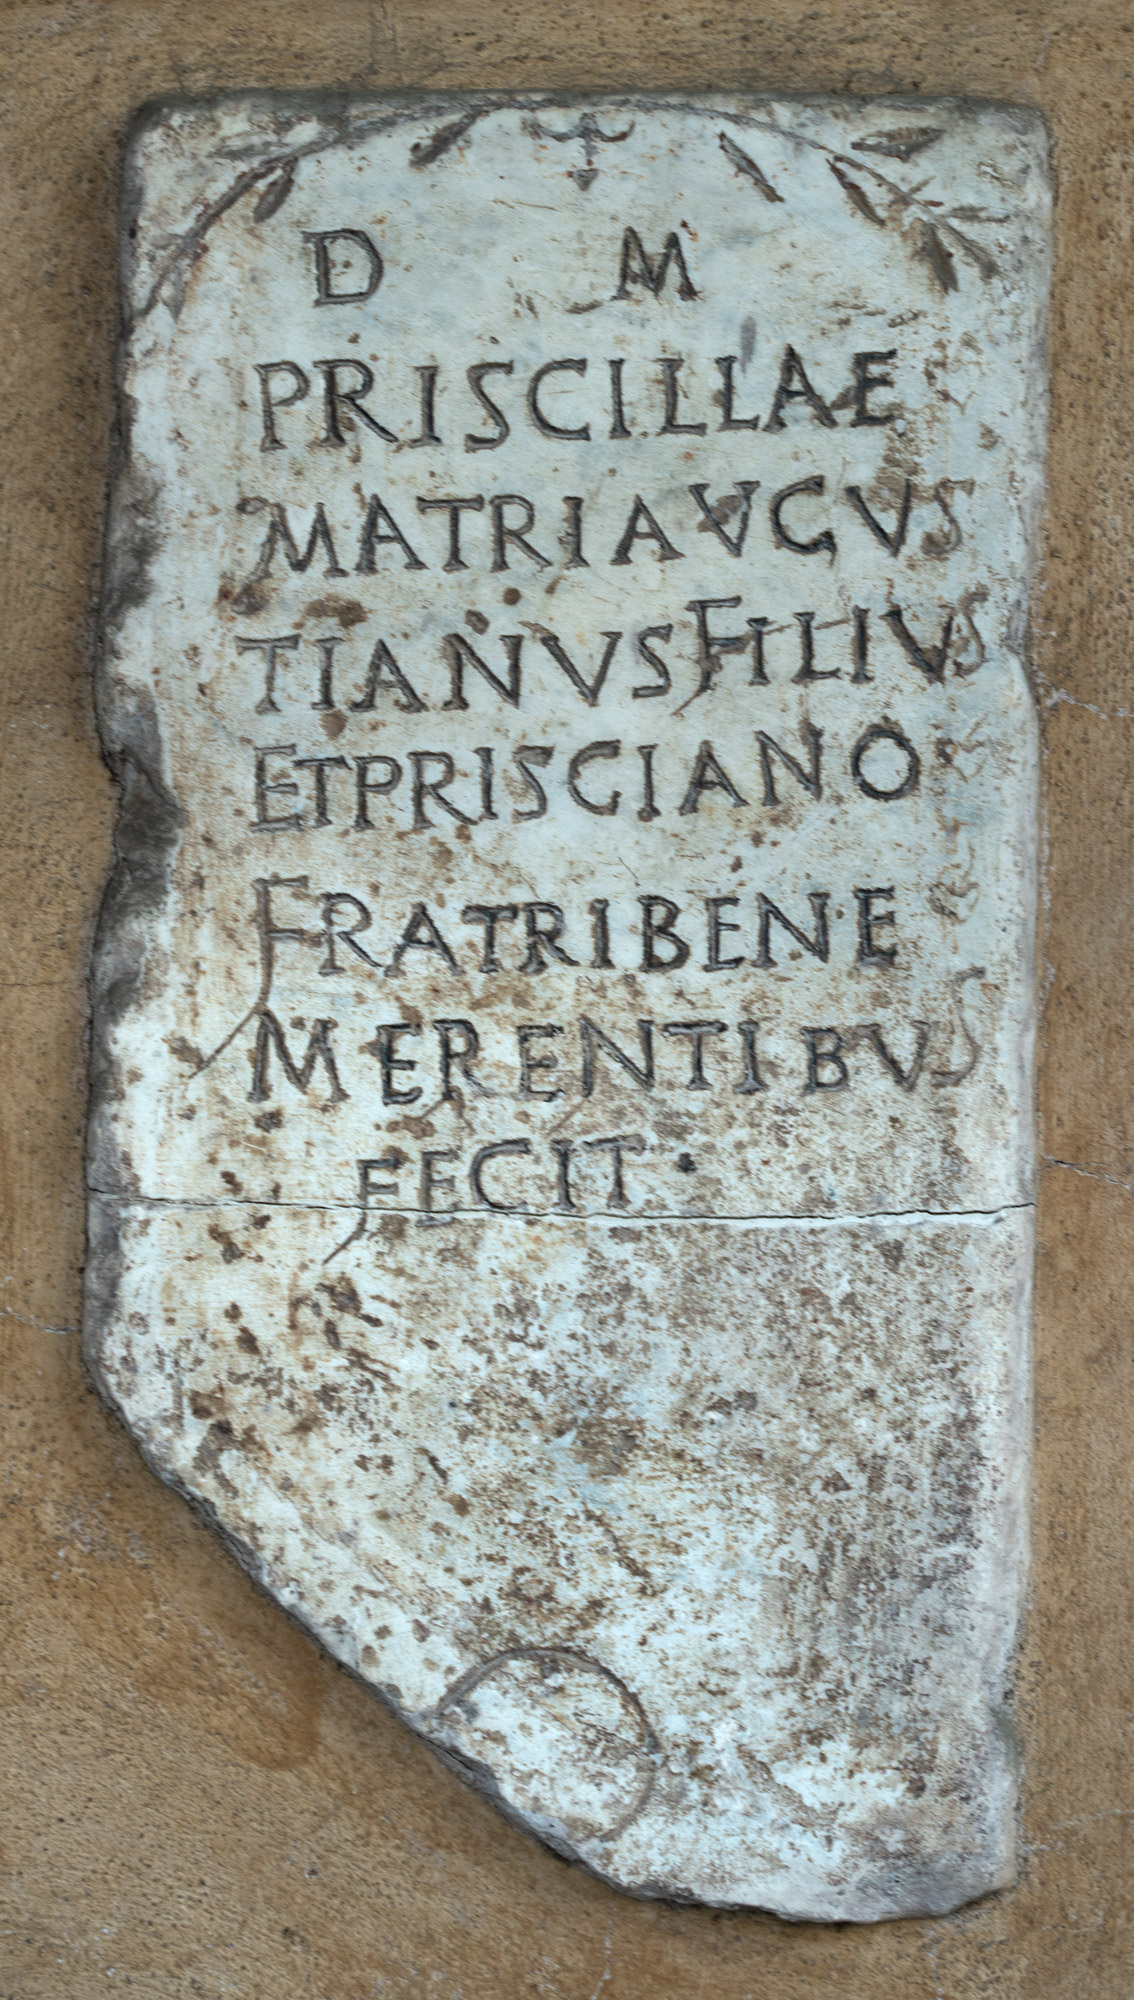 D M
PRISCILLAE
MATRIAVGVS
TIANVSFILIVS
ETPRISCIANO
FRATRIBENE
MERENTIBVS
FECIT·